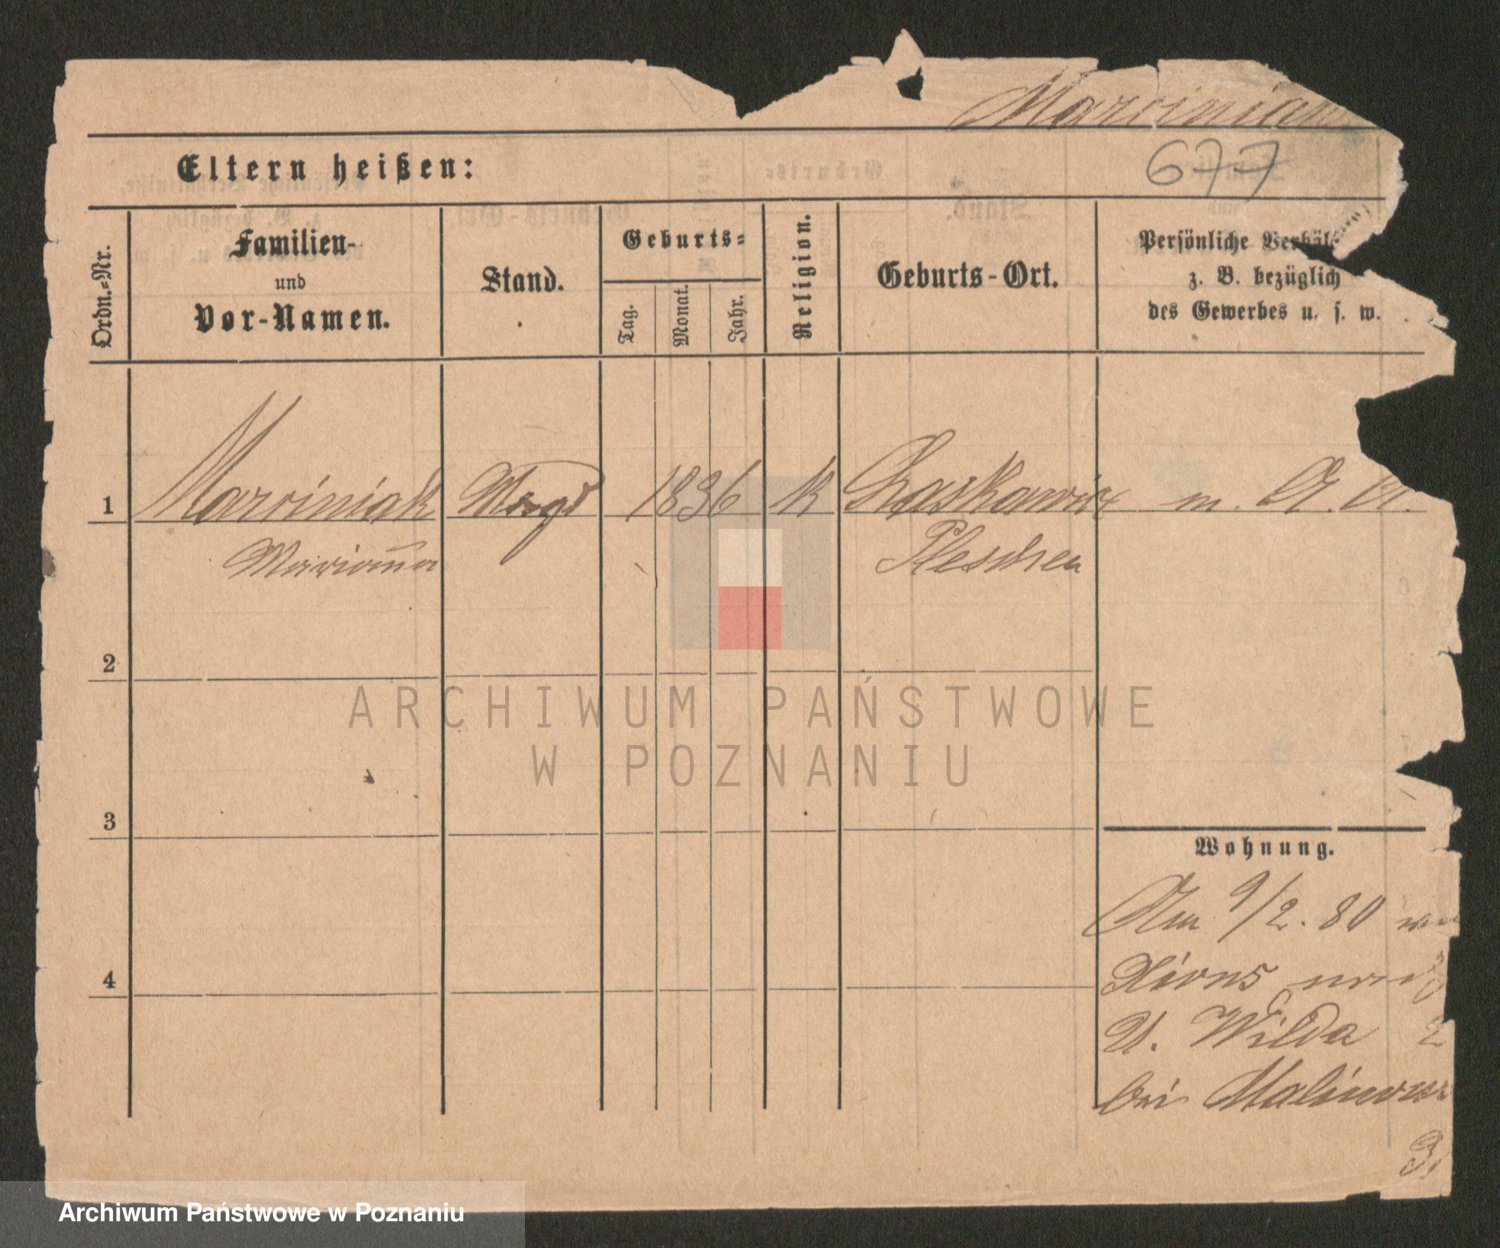 Marciniak
677
Eltern heißen:
Ordn.-Nr.
Familien-
und
Vor-Namen.
Stand.
Geburts-
Tag.
Monat.
Jahr.
Religion.
Geburts-Ort.
Persönliche Verhäl
z. B. bezüglich
des Gewerbes u. s. w.
1
Marciniak Magd 1836 k Laskawicz m. A. A.
Marianna
Pleschen
2
3
4
Wohnung.
Am 9/2. 80
U. Wilda 2
bei
ARCHIWUM PAŃSTWOWE
W POZNANIU
Archiwum Państwowe w Poznaniu